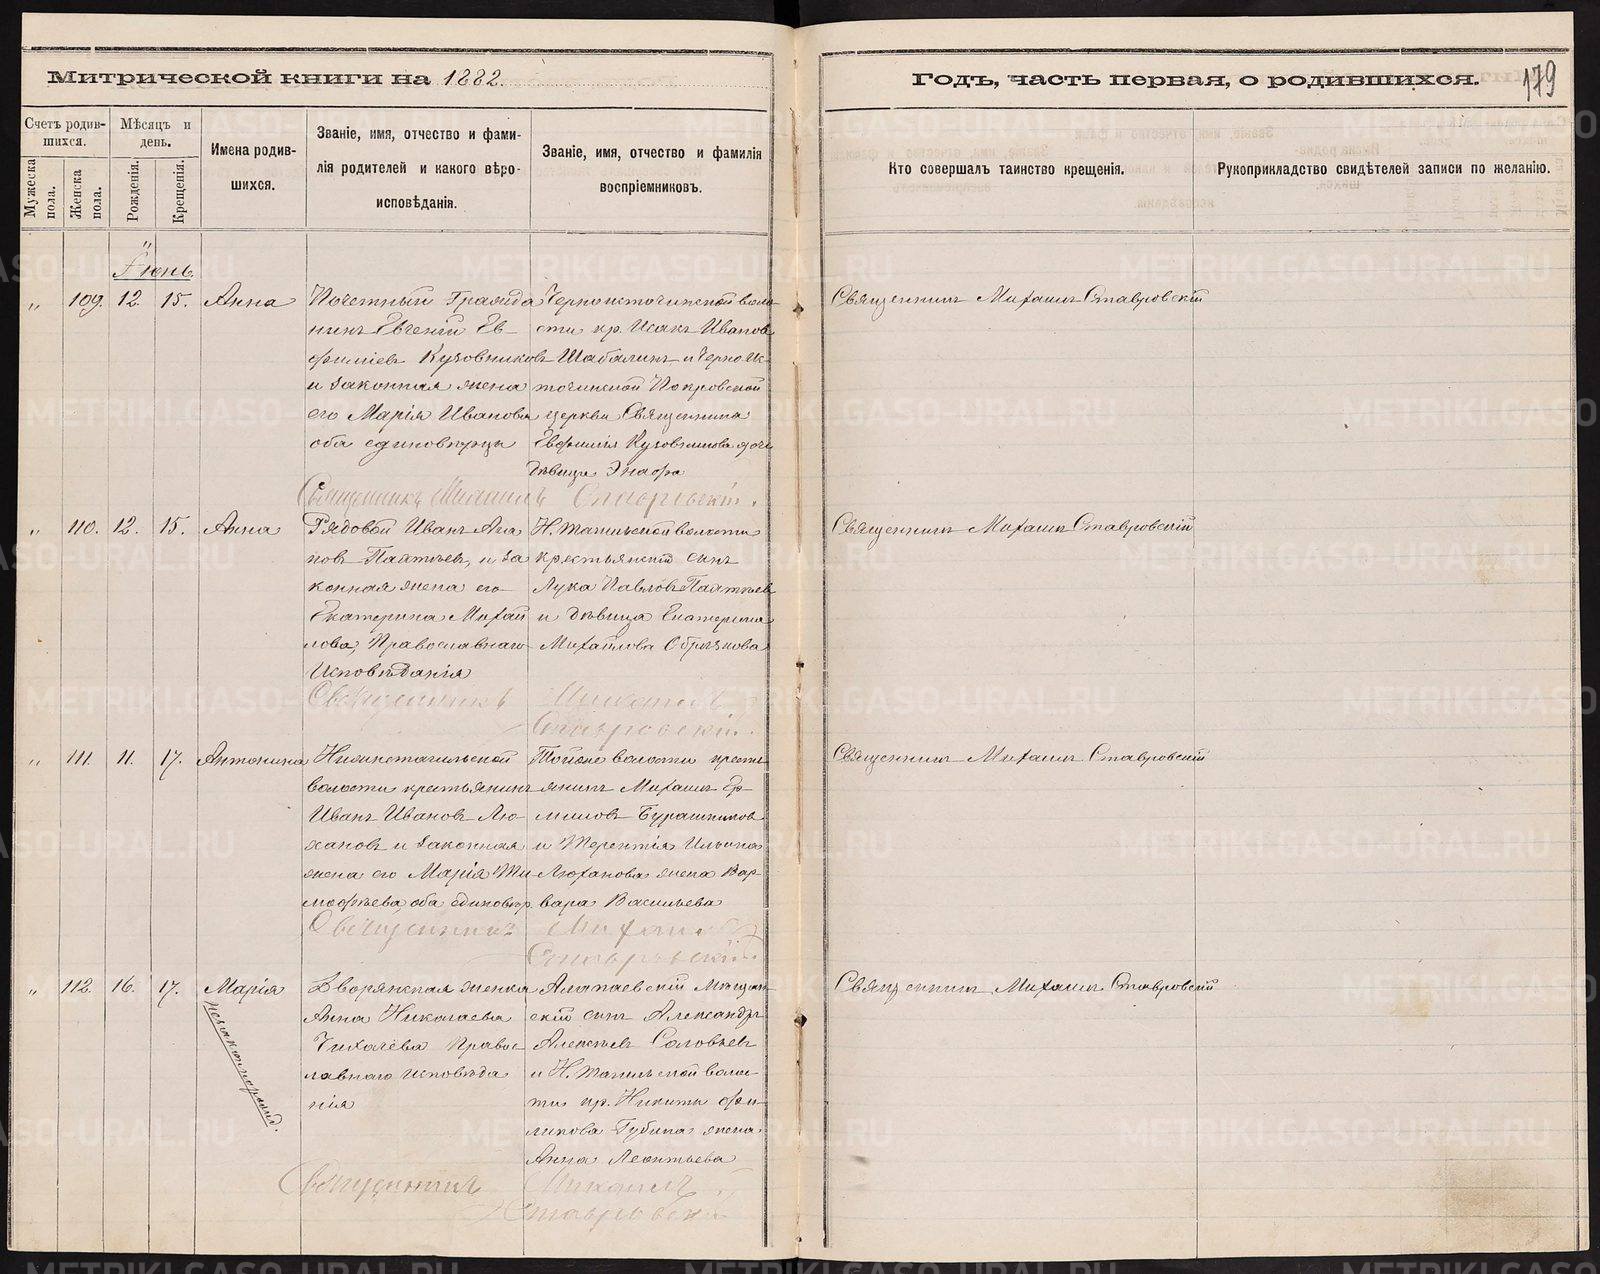 Митрической книги на 1882.
Годъ, часть первая, о родившихся.
179
Счетъ родив-
шихся.
Мужеска
пола.
Женска
пола.
Мѣсяцъ и
день.
Рожденія.
Крещенія.
Имена родив-
шихся.
Званіе, имя, отчество и фами-
лія родителей и какого вѣро-
исповѣданія.
Званіе, имя, отчество и фамилія
воспріемниковъ.
Кто совершалъ таинство крещенія.
Рукоприкладство свидѣтелей записи по желанію.
Іюнь.
„ 109. 12. 15. Анна
Почетный Гражда
нинъ Евгеній Ев-
фиміевъ Кузовниковъ
и законная жена
его Марія Иванова
оба единовѣрцы
Черноисточинской воло
сти кр. Исакъ Ивановъ
Шабалинъ и Черноис
точинской Покровской
церкви Священника
Евфимія Кузовникова дочь
дѣвица
Священникъ Михаилъ Ставровскій
Священникъ Михаилъ Ставровскій.
„ 110. 12. 15. Анна
Рядовой Иванъ Ага
повъ и за
конная жена его
Екатерина Михай
лова, Православнаго
Исповѣданія
Н. Тагильской волости
крестьянскій сынъ
Лука Павловъ
и дѣвица Екатерина
Михайлова Обрѣзкова
Священникъ Михаилъ Ставровскій
Священникъ Михаилъ
Ставровскій.
„ 111. 11. 17. Антонина
Нижнетагильской
волости крестьянинъ
Иванъ Ивановъ Лю-
хановъ и законная
жена его Марія Ти
мофѣева, оба единовѣр
Тойже волости кресть
янинъ Михаилъ Ер-
миловъ Бурашниковъ
и Терентія Ильина
Люханова жена Вар-
вара Васильева
Священникъ Михаилъ Ставровскій
Священникъ Михаилъ
Ставровскій
„ 112. 16. 17. Марія
незаконнорожд.
Дворянская женка
Анна Николаева
Чихачева Правос
лавнаго исповѣда
нія
Алапаевскій Мѣщан
скій сынъ Александръ
Алексѣевъ Соловьевъ
и Н. Тагильской воло
сти кр. Никиты Фи-
липова Губина жена
Анна Леонтьева
Священникъ Михаилъ Ставровскій
Священникъ Михаилъ
Ставровскій
METRIKI.GASO-URAL.RU